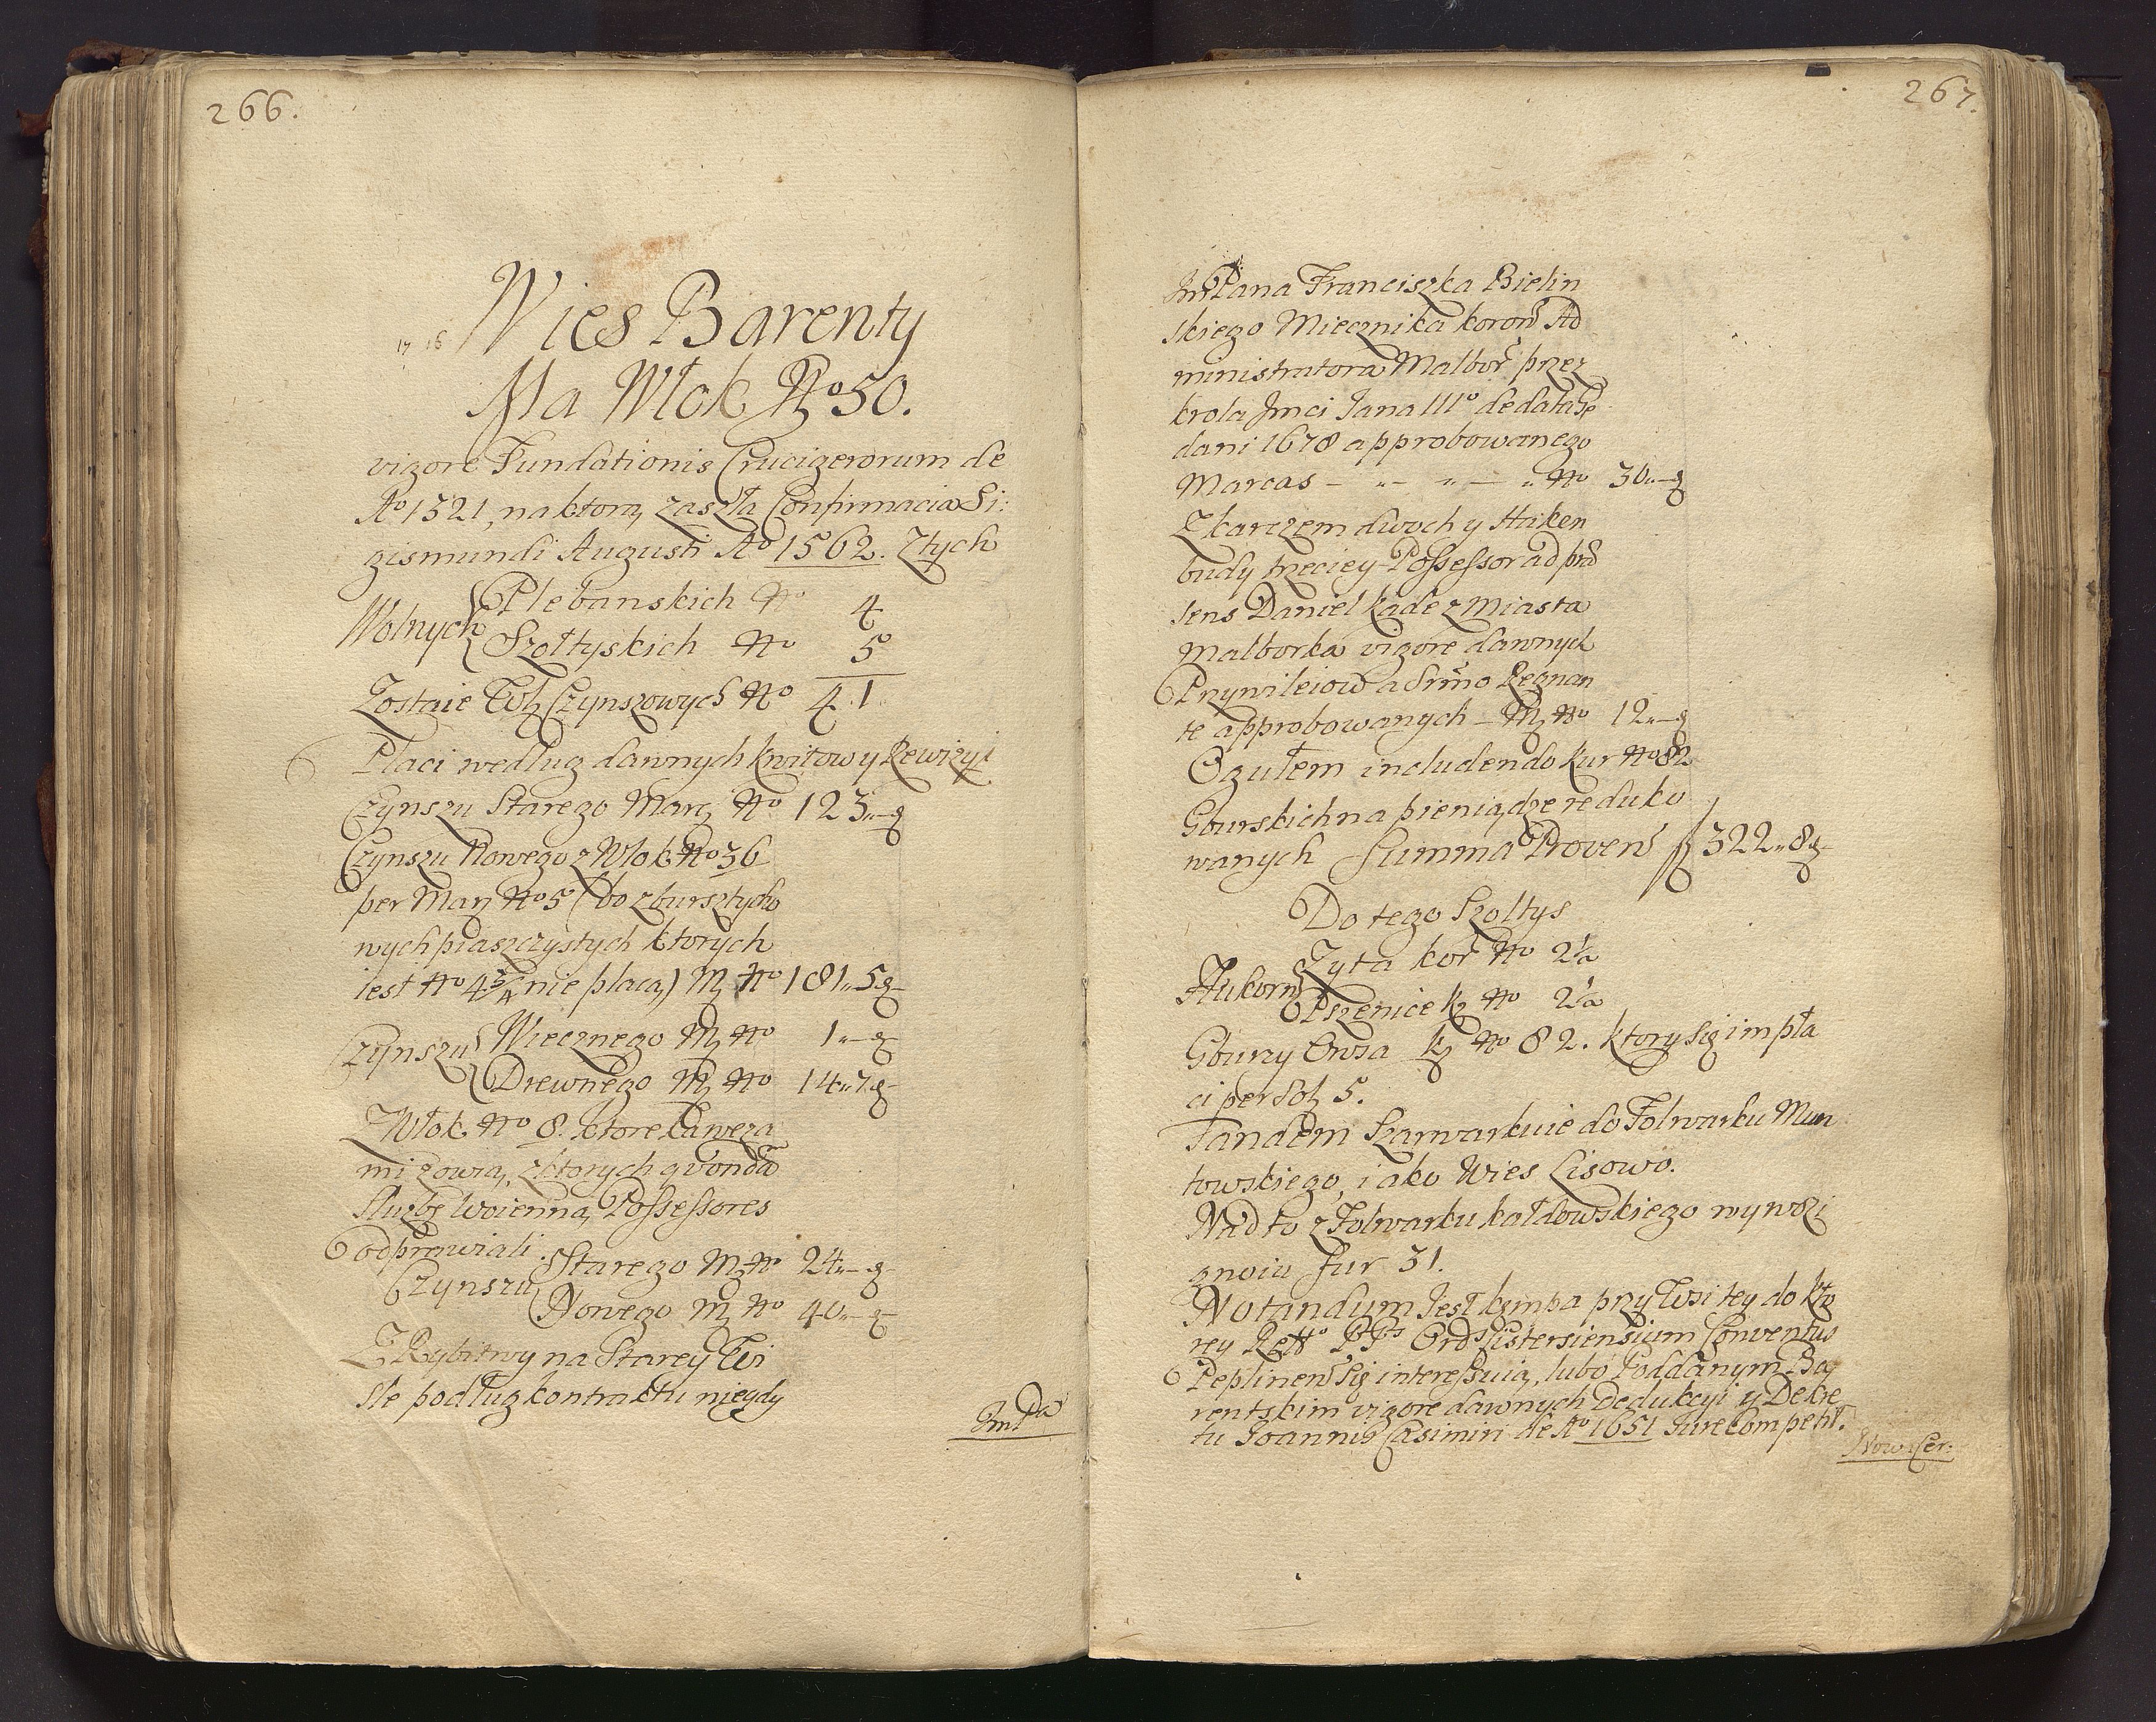 266.
17 16
Wies Barenty
Ma Włok No 50.
vigore Fundationis Crucigerorum de
Ao 1521, na ktorą zaszła Confirmacia Si:
gismundi Augusti Ao 1562. Ztych
Wolnych Plebanskich No 4
Szołtyskich No 5
Zostaie Wł Czynszowych No 41
Płaci według dawnych kwitow y Rewizyi
Czynszu Starego Marc No 123„—g
Czynszu Nowego z Włok No 36
per Marc No 5 (bo z bursztyko
wych piaszczystych ktorych
iest No 4¾ nie płacą) M No 181„5g
Czynszu Wiecznego M No 1„—g
Drewnego M No 14„7g
Z Włok No 8. ktore Ławeza
mi zowią, z ktorych qvondã
Służbę Woienną Possessores
odprawiali.
Czynszu Starego M No 24„—g
Nowego M No 40„—g
Z Rybitwy na Starey Wi
śle podług kontraktu niegdy
Jm Pa
267.
Jm Pana Franciszka Bielin
skiego Miecznika koron Ad
ministratora Malbor przez
krola Jmci Jana III° de data
dani 1678 approbowanego
Marcas — „— „ — „ No 30„—g
Z karczem dwoch y Haken
budy trzeciey Possessor ad præ
sens Daniel Kade z miasta
Malborka vigore dawnych
Przywileiow a Srmo Regnan
te approbowanych — M No 12„—g
Ogułem includendo kur No 82
Gburskich na pieniądze reduko
wanych Summa Proven f 322„8g
Do tego Szołtys
Hukorn Zyta kor No 2½
Pszenice k No 2½
Gburzy Owsa k No 82. ktory się im pła
ci per Sol 5.
Tandem Szarwarkuie do Folwarku Mun
towskiego, iako Wies Lisowo.
Nadto z Folwarku kałdowskiego wywozi
gnoiu fur 31.
Notandum Jest kępa przy Wsi tey do kto
rey Ord Cistersiensium Conventus
Peplinen się interessuią, lubo Poddanym Ba
rentskim vigore dawnych Dedukcyi y Dekre
tu Joannis Casimiri de Ao 1651 Jure Competit.
Now: Cer: